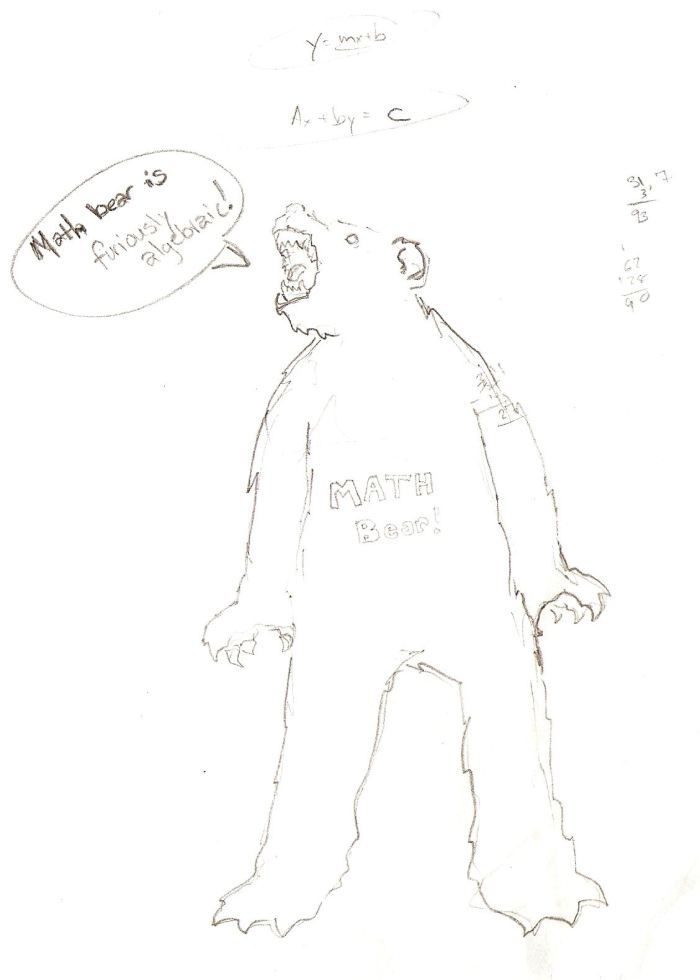 y=mx+b
Ax+by= C
Math bear is
furiously
algebraic!
31
3
93
MATH
Bear!